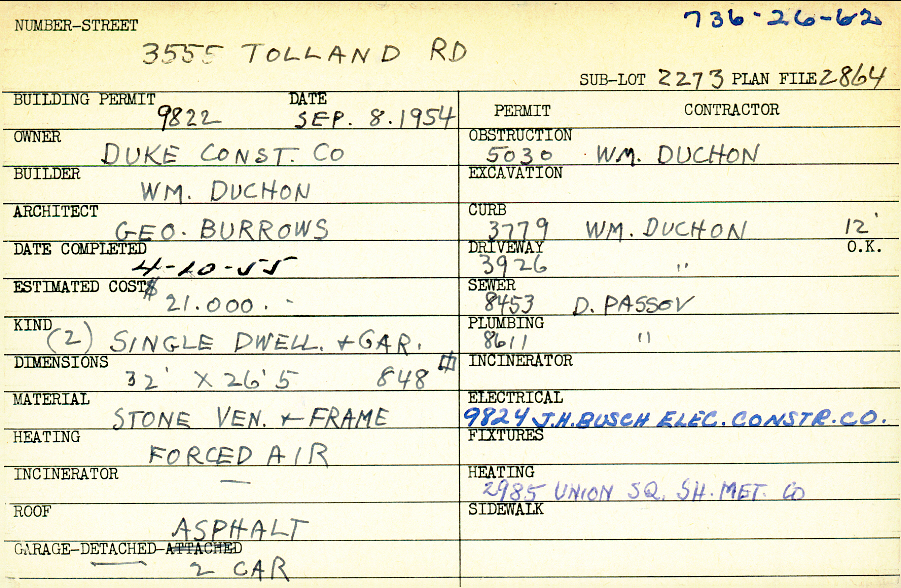 736-26-62
NUMBER-STREET
3555 TOLLAND RD
SUB-LOT 2273 PLAN FILE 2864
BUILDING PERMIT DATE
9822 SEP. 8. 1954
OWNER
DUKE CONST. CO
BUILDER
WM. DUCHON
ARCHITECT
GEO. BURROWS
DATE COMPLETED
4-20-55
ESTIMATED COST $
21.000. -
KIND
(2) SINGLE DWELL. + GAR.
DIMENSIONS
32' X 26'5 848
MATERIAL
STONE VEN. + FRAME
HEATING
FORCED AIR
INCINERATOR
—
ROOF
ASPHALT
GARAGE-DETACHED-ATTACHED
2 CAR
PERMIT CONTRACTOR
OBSTRUCTION
5030 WM. DUCHON
EXCAVATION
CURB
3779 WM. DUCHON 12'
DRIVEWAY O.K.
3926 "
SEWER
8453 D. PASSOV
PLUMBING
8611 "
INCINERATOR
ELECTRICAL
9824 J.H. BUSCH ELEC. CONSTR. CO.
FIXTURES
HEATING
2985 UNION SQ. SH. MET. CO
SIDEWALK